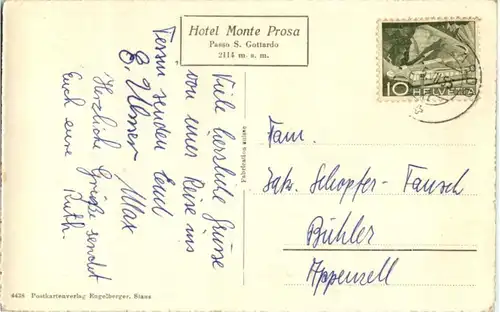 Hotel Monte Prosa
Passo S. Gottardo
2114 m. s. m.
10 HELVETIA
Viele herzliche Grüsse
von unsr Reise ins
Tessin senden Euch
E. Max
Herzliche Grüße sendet
Euch eure
Ruth.
Fam.
Jak. Schopfer-Tausch
Bühler
Appenzell
Fabrication suisse
4438 Postkartenverlag Engelberger, Stans